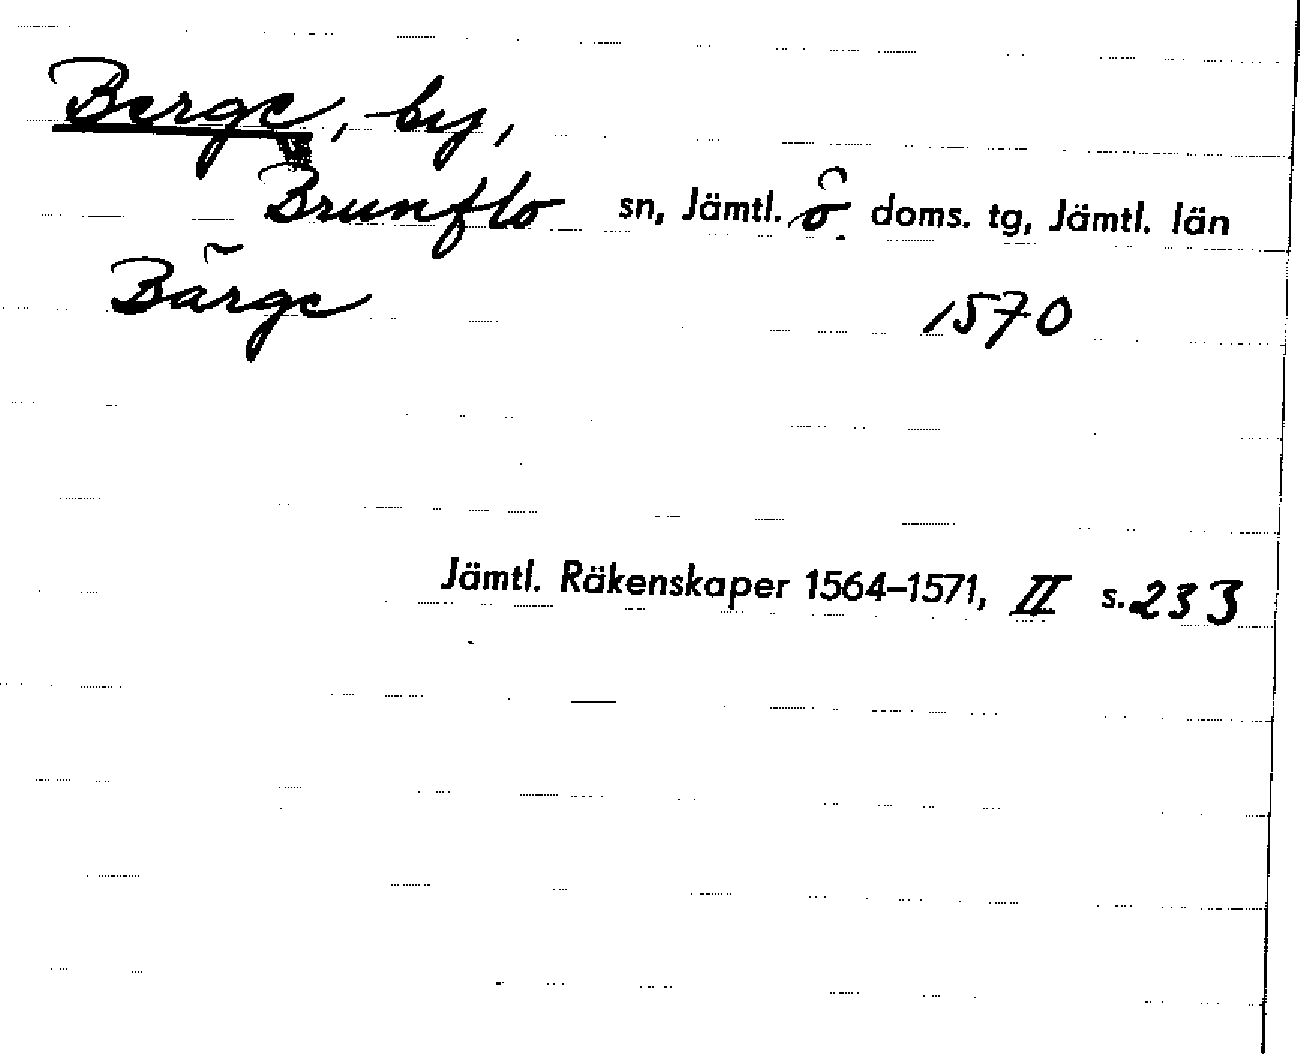 Berge, by,
Brunflo sn, Jämtl. ö. doms. tg, Jämtl. län
Bärge 1570
Jämtl. Räkenskaper 1564–1571, II s. 233